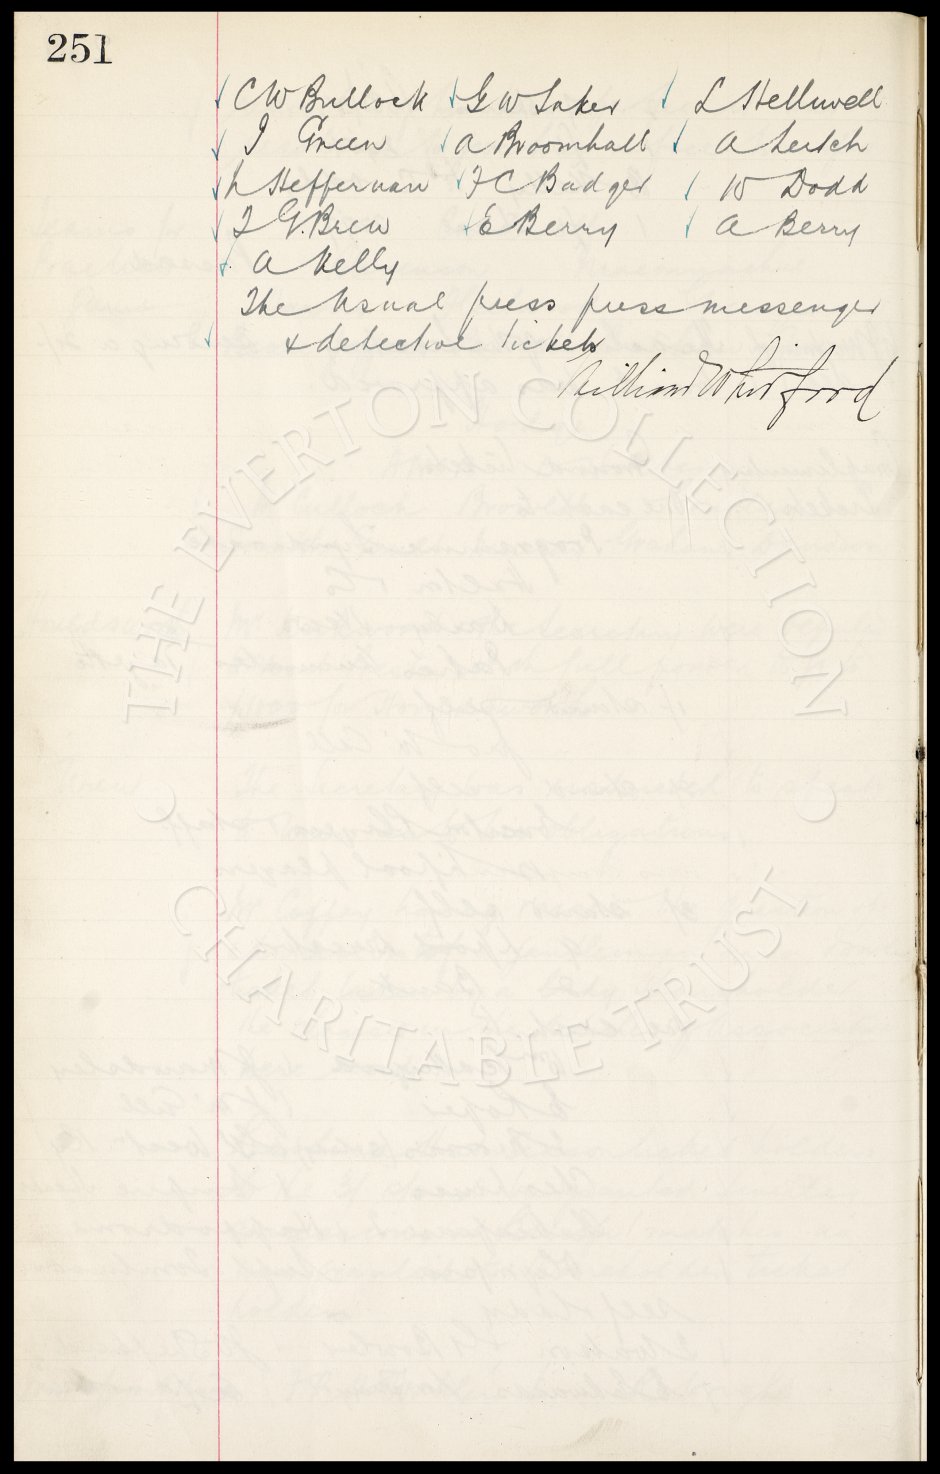 251
C W Bullock G W Inker L Helliwell
J Green A Broomhall A Leitch
L Heffernan F C Badger W Dodd
T G. Brew E Berry A Berry
A Kelly
The usual press press messenger
& detective tickets
William Whitford
THE EVERTON COLLECTION
CHARITABLE TRUST